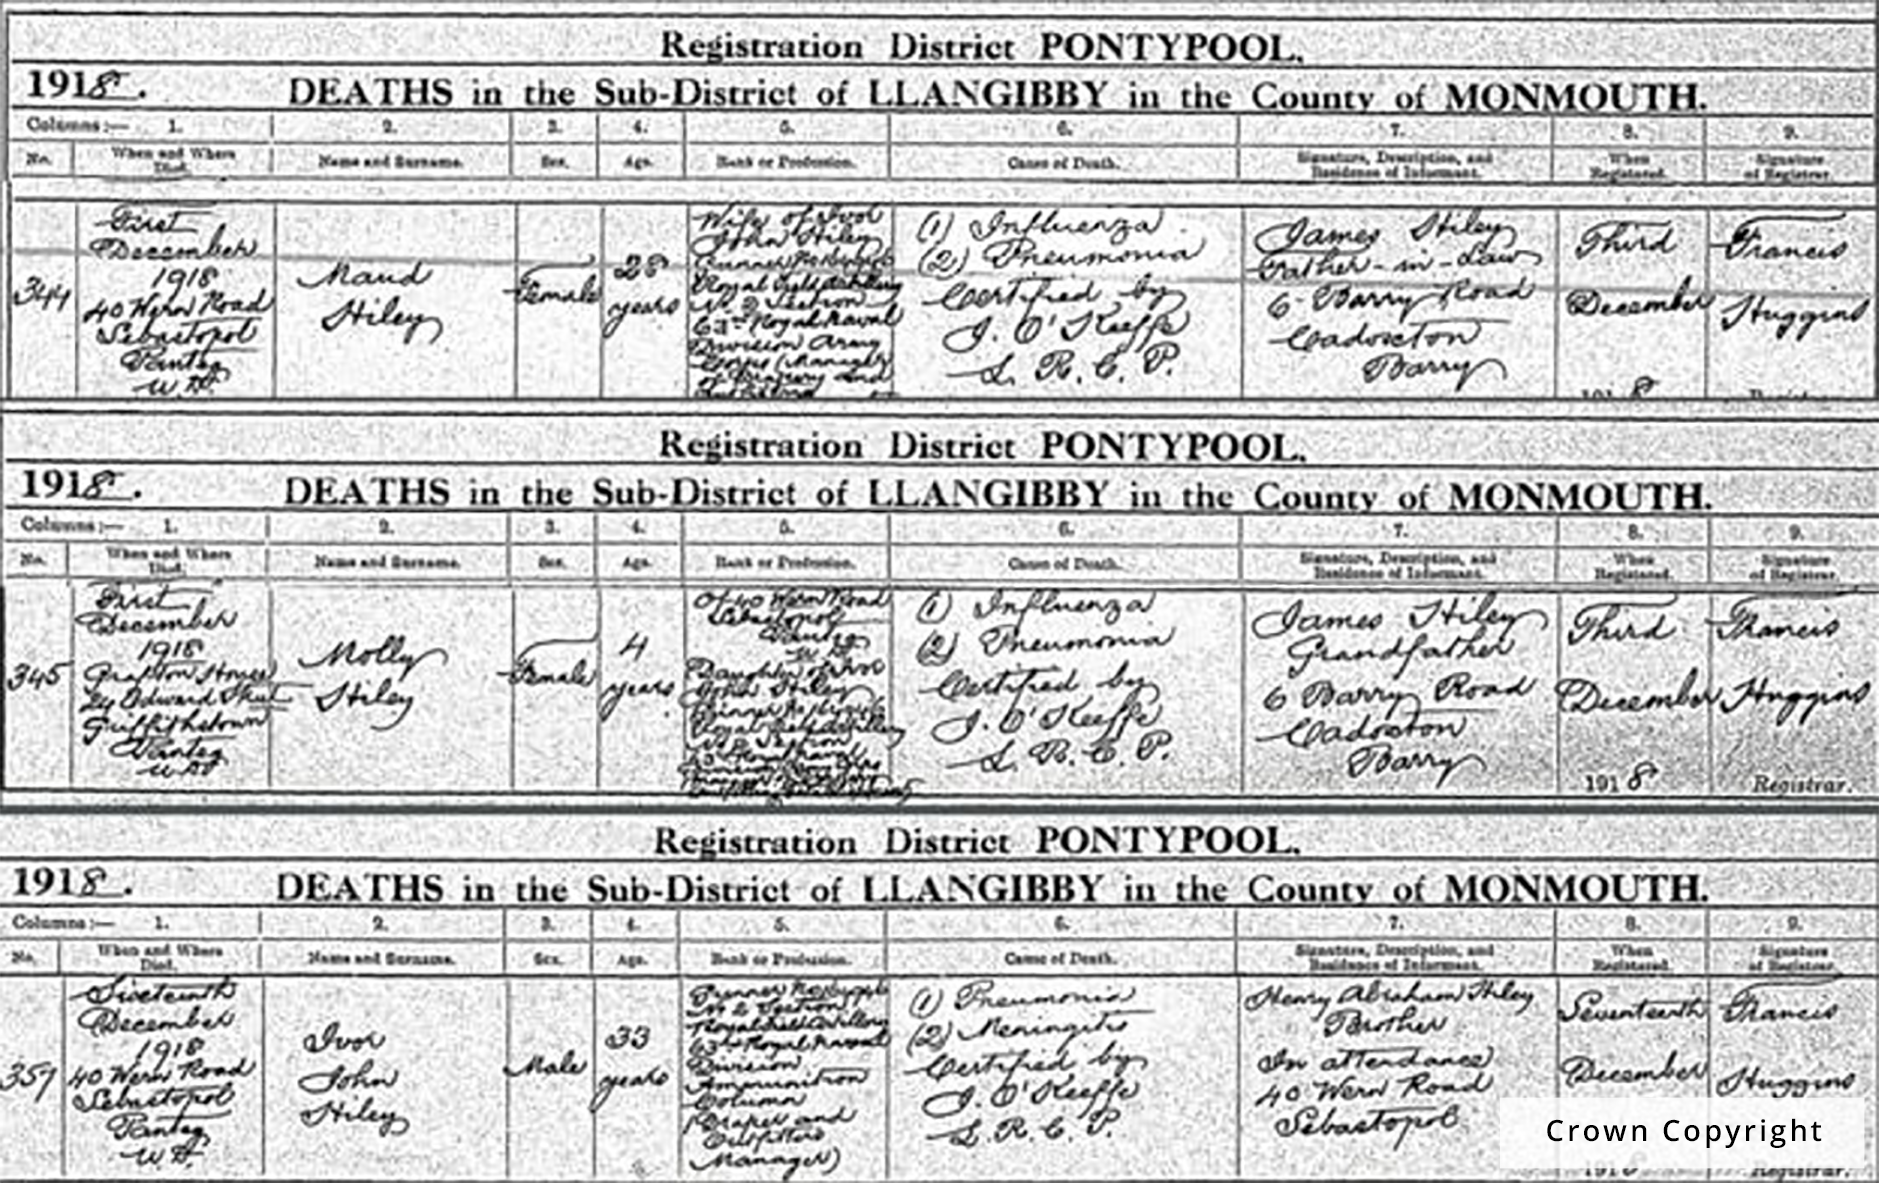 Registration District PONTYPOOL.
1918. DEATHS in the Sub-District of LLANGIBBY in the County of MONMOUTH.
Columns:— 1. 2. 3. 4. 5. 6. 7. 8. 9.
No. When and Where Died. Name and Surname. Sex. Age. Rank or Profession. Cause of Death. Signature, Description, and Residence of Informant. When Registered. Signature of Registrar.
344
First
December
1918
40 Wern Road
Sebastopol
Panteg
U.D.
Maud
Hiley
Female
28
years
Wife of Ivor
John Hiley
Gunner
Royal Field Artillery
No. 2 Section
63rd Royal Naval
Division Army
(Manager
of Drapery and
(1) Influenza
(2) Pneumonia
Certified by
J. O'Keeffe
L. R. C. P.
James Hiley
Father-in-Law
6 Barry Road
Cadoxton
Barry
Third
December
1918
Francis
Huggins
Registrar.
Registration District PONTYPOOL.
1918. DEATHS in the Sub-District of LLANGIBBY in the County of MONMOUTH.
Columns:— 1. 2. 3. 4. 5. 6. 7. 8. 9.
No. When and Where Died. Name and Surname. Sex. Age. Rank or Profession. Cause of Death. Signature, Description, and Residence of Informant. When Registered. Signature of Registrar.
345
First
December
1918
Grafton House
24 Edward Street
Griffithstown
Panteg
U.D.
Molly
Hiley
Female
4
years
Of 40 Wern Road
Sebastopol
Panteg
U.D.
Daughter of Ivor
John Hiley
Gunner
Royal Field Artillery
No. 2 Section
63rd Royal Naval
(1) Influenza
(2) Pneumonia
Certified by
J. O'Keeffe
L. R. C. P.
James Hiley
Grandfather
6 Barry Road
Cadoxton
Barry
Third
December
1918
Francis
Huggins
Registrar.
Registration District PONTYPOOL.
1918. DEATHS in the Sub-District of LLANGIBBY in the County of MONMOUTH.
Columns:— 1. 2. 3. 4. 5. 6. 7. 8. 9.
No. When and Where Died. Name and Surname. Sex. Age. Rank or Profession. Cause of Death. Signature, Description, and Residence of Informant. When Registered. Signature of Registrar.
357
Sixteenth
December
1918
40 Wern Road
Sebastopol
Panteg
U.D.
Ivor
John
Hiley
Male
33
years
Gunner
No 2 Section
Royal Field Artillery
63rd Royal Naval
Division
Ammunition
Column
(Draper and
Outfitters
Manager)
(1) Pneumonia
(2) Meningitis
Certified by
J. O'Keeffe
L. R. C. P.
Henry Abraham Hiley
Brother
In attendance
40 Wern Road
Sebastopol
Seventeenth
December
1918
Francis
Huggins
Registrar.
Crown Copyright